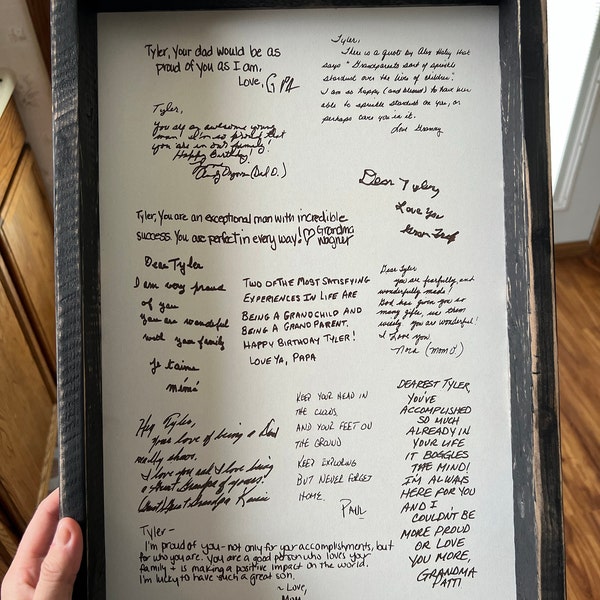 Tyler, Your dad would be as
proud of you as I am.
Love, G PA
Tyler,
There is a quote by Alex Haley that
says "Grandparents sort of sprinkle
stardust over the lives of children".
I am so happy (and blessed) to have been
able to sprinkle stardust on you, or
perhaps cause you in it.
Love Granny
Tyler,
You are an awesome young
man! I'm so proud that
you are in our family!
Happy Birthday!
(Dad O.)
Dear Tyler
Love You
Tyler, You are an exceptional man with incredible
success. You are perfect in every way! ♡ Grandma
Wagner
Dear Tyler
I am very proud
of you
You are wonderful
with your family
Je t'aime
mémé
TWO OF THE MOST SATISFYING
EXPERIENCES IN LIFE ARE
BEING A GRANDCHILD AND
BEING A GRANDPARENT.
HAPPY BIRTHDAY TYLER!
LOVE YA, PAPA
Dear Tyler
You are fearfully and
wonderfully made!
God has given you so
many gifts, use them
wisely. You are wonderful!
I Love you,
Nora (mom O)
Hey Tyler,
Your love of being a Dad
really shows.
I love you and I love being
a Great Grandpa of yours!
Great Great Grandpa
KEEP YOUR HEAD IN
THE CLOUDS,
AND YOUR FEET ON
THE GROUND
KEEP EXPLORING
BUT NEVER FORGET
HOME.
PAUL
DEAREST TYLER,
YOU'VE
ACCOMPLISHED
SO MUCH
ALREADY IN
YOUR LIFE
IT BOGGLES
THE MIND!
I'M ALWAYS
HERE FOR YOU
AND I
COULDN'T BE
MORE PROUD
OR LOVE
YOU MORE,
GRANDMA
PATTI
Tyler-
I'm proud of you-not only for your accomplishments, but
for who you are. You are a good person who loves your
family + is making a positive impact on the world.
I'm lucky to have such a great son.
~ Love,
Mom